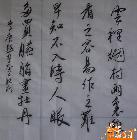 雲裡烟村雨裏灘
看之容易作之難
早知不入時人眼
多買臙脂畫牡丹